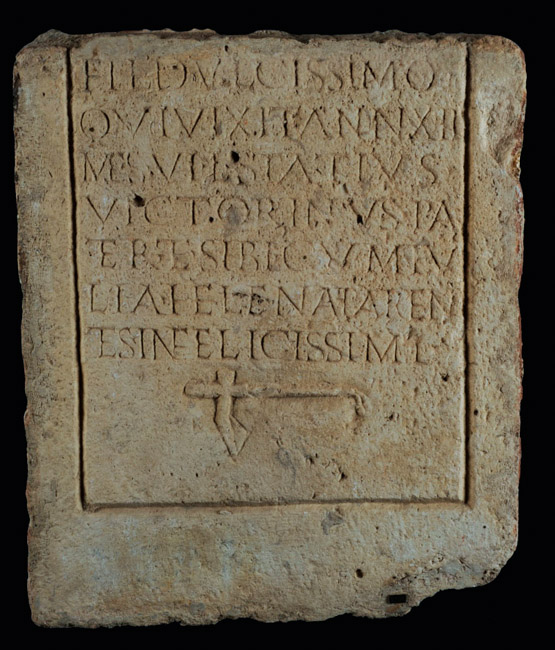 FIL DVLCISSIMO
QVI VIXIT ANN XII
MES VI L STATIVS
VICTORINVS PA
TER ET SIBI CVM IV
LIA HELENA PAREN
TES INFELICISSIMI